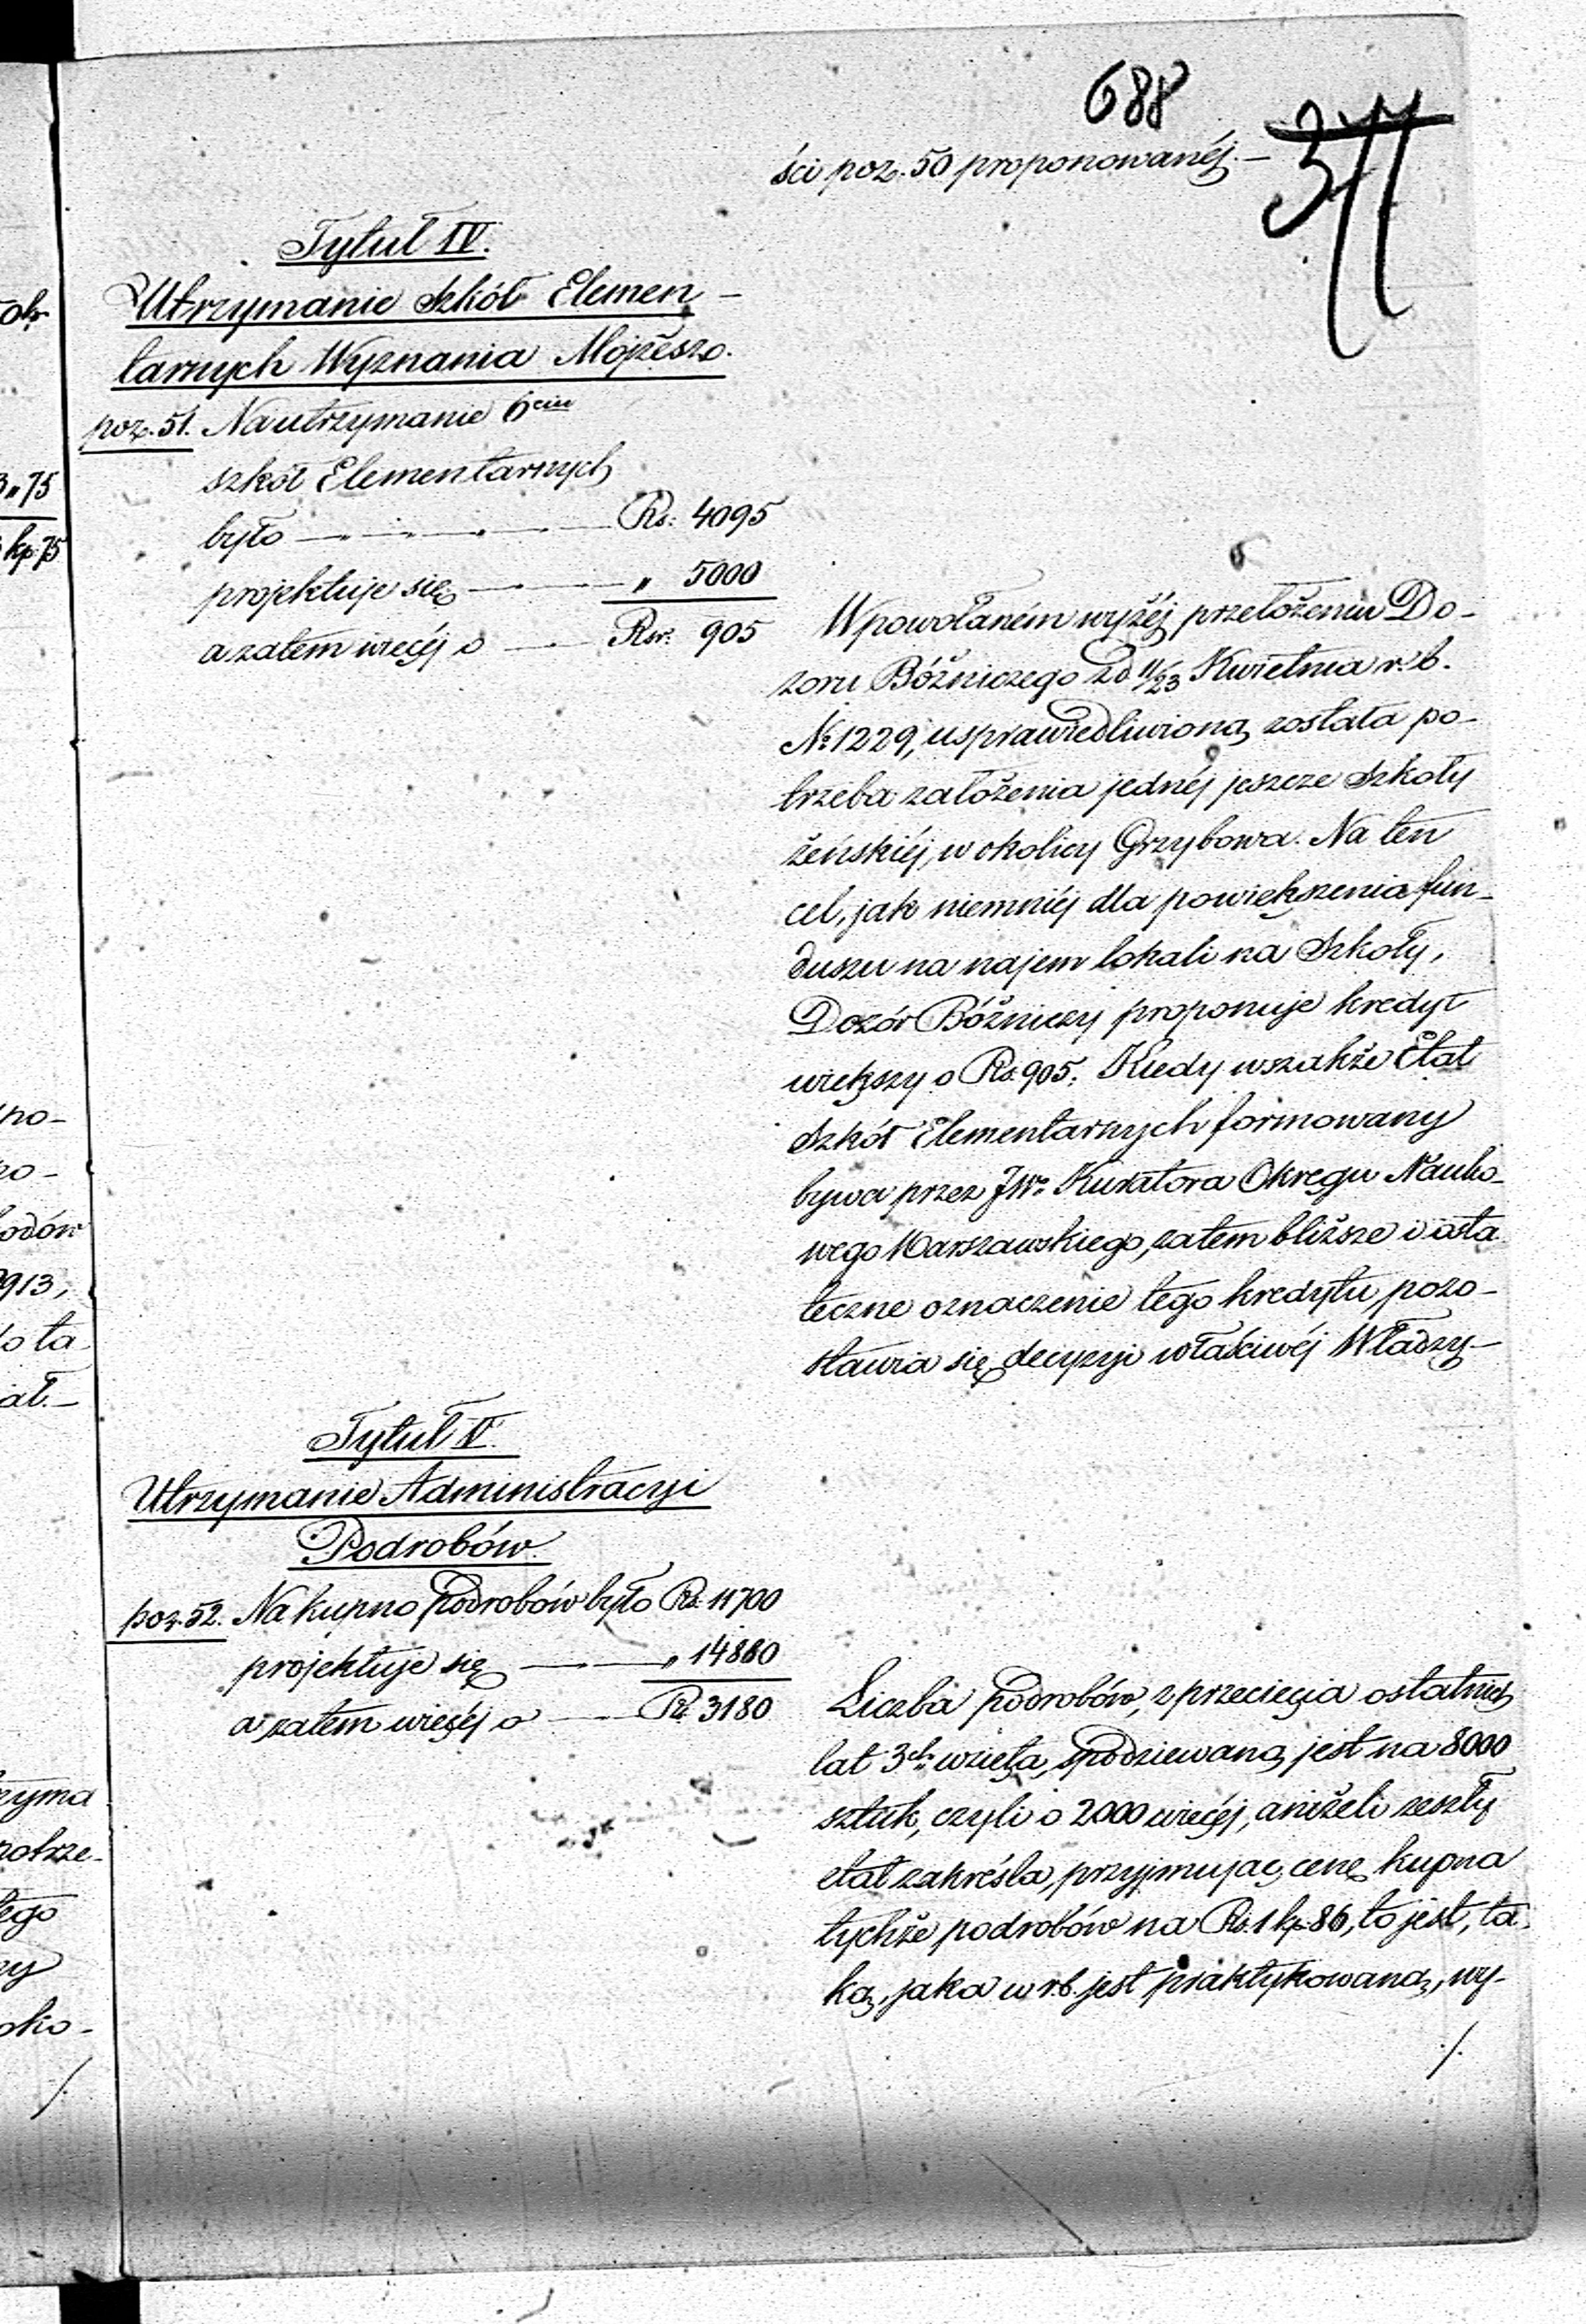 688
377
ści poz. 50 proponowanéj.—
Tytuł IV.
Utrzymanie Szkół Elemen–
tarnych Wyznania Mojżesz.
poz. 51. Na utrzymanie 6ciu
szkół Elementarnych
było — Rs: 4095
projektuje się — " 5000
a zatem więcéj o — Rsr: 905
W powołaném wyżéj przełożeniu Do–
zoru Bóżniczego z d 11/23 Kwietnia r. b.
No 1229, usprawiedliwioną została po–
trzeba założenia jednéj jeszcze Szkoły
żeńskiéj, w okolicy Grzybowa. Na ten
cel, jak niemniéj dla powiększenia fun–
duszu na najem lokali na Szkoły,
Dozór Bóżniczy proponuje kredyt
większy o Rs. 905. Kiedy wszakże Etat
Szkół Elementarnych formowany
bywa przez JWo Kuratora Okręgu Nauko–
wego Warszawskiego, zatem bliższe i osta
teczne oznaczenie tego kredytu, pozo–
stawia się decyzyi właściwéj Władzy—
Tytuł V.
Utrzymanie Administracyi
Podrobów.
poz. 52. Na kupno podrobów było Rs. 11700
projektuje się — " 14880
a zatem więcéj o — Rs. 3180
Liczba podrobów, z przecięcia ostatnich
lat 3ch wzięta, spodziewaną jest na 8000
sztuk, czyli o 2000 więcéj, aniżeli zeszły
etat zakréśla, przyjmując cenę kupna
tychże podrobów na Rs. 1 kp. 86, to jest, ta
ką, jaka w r.b. jest praktykowaną, wy–
./.
ok
3 " 75
kp 75
po–
odów
913,
ota
ał.—
zyma
potrze–
tego
zy
oko–
/.